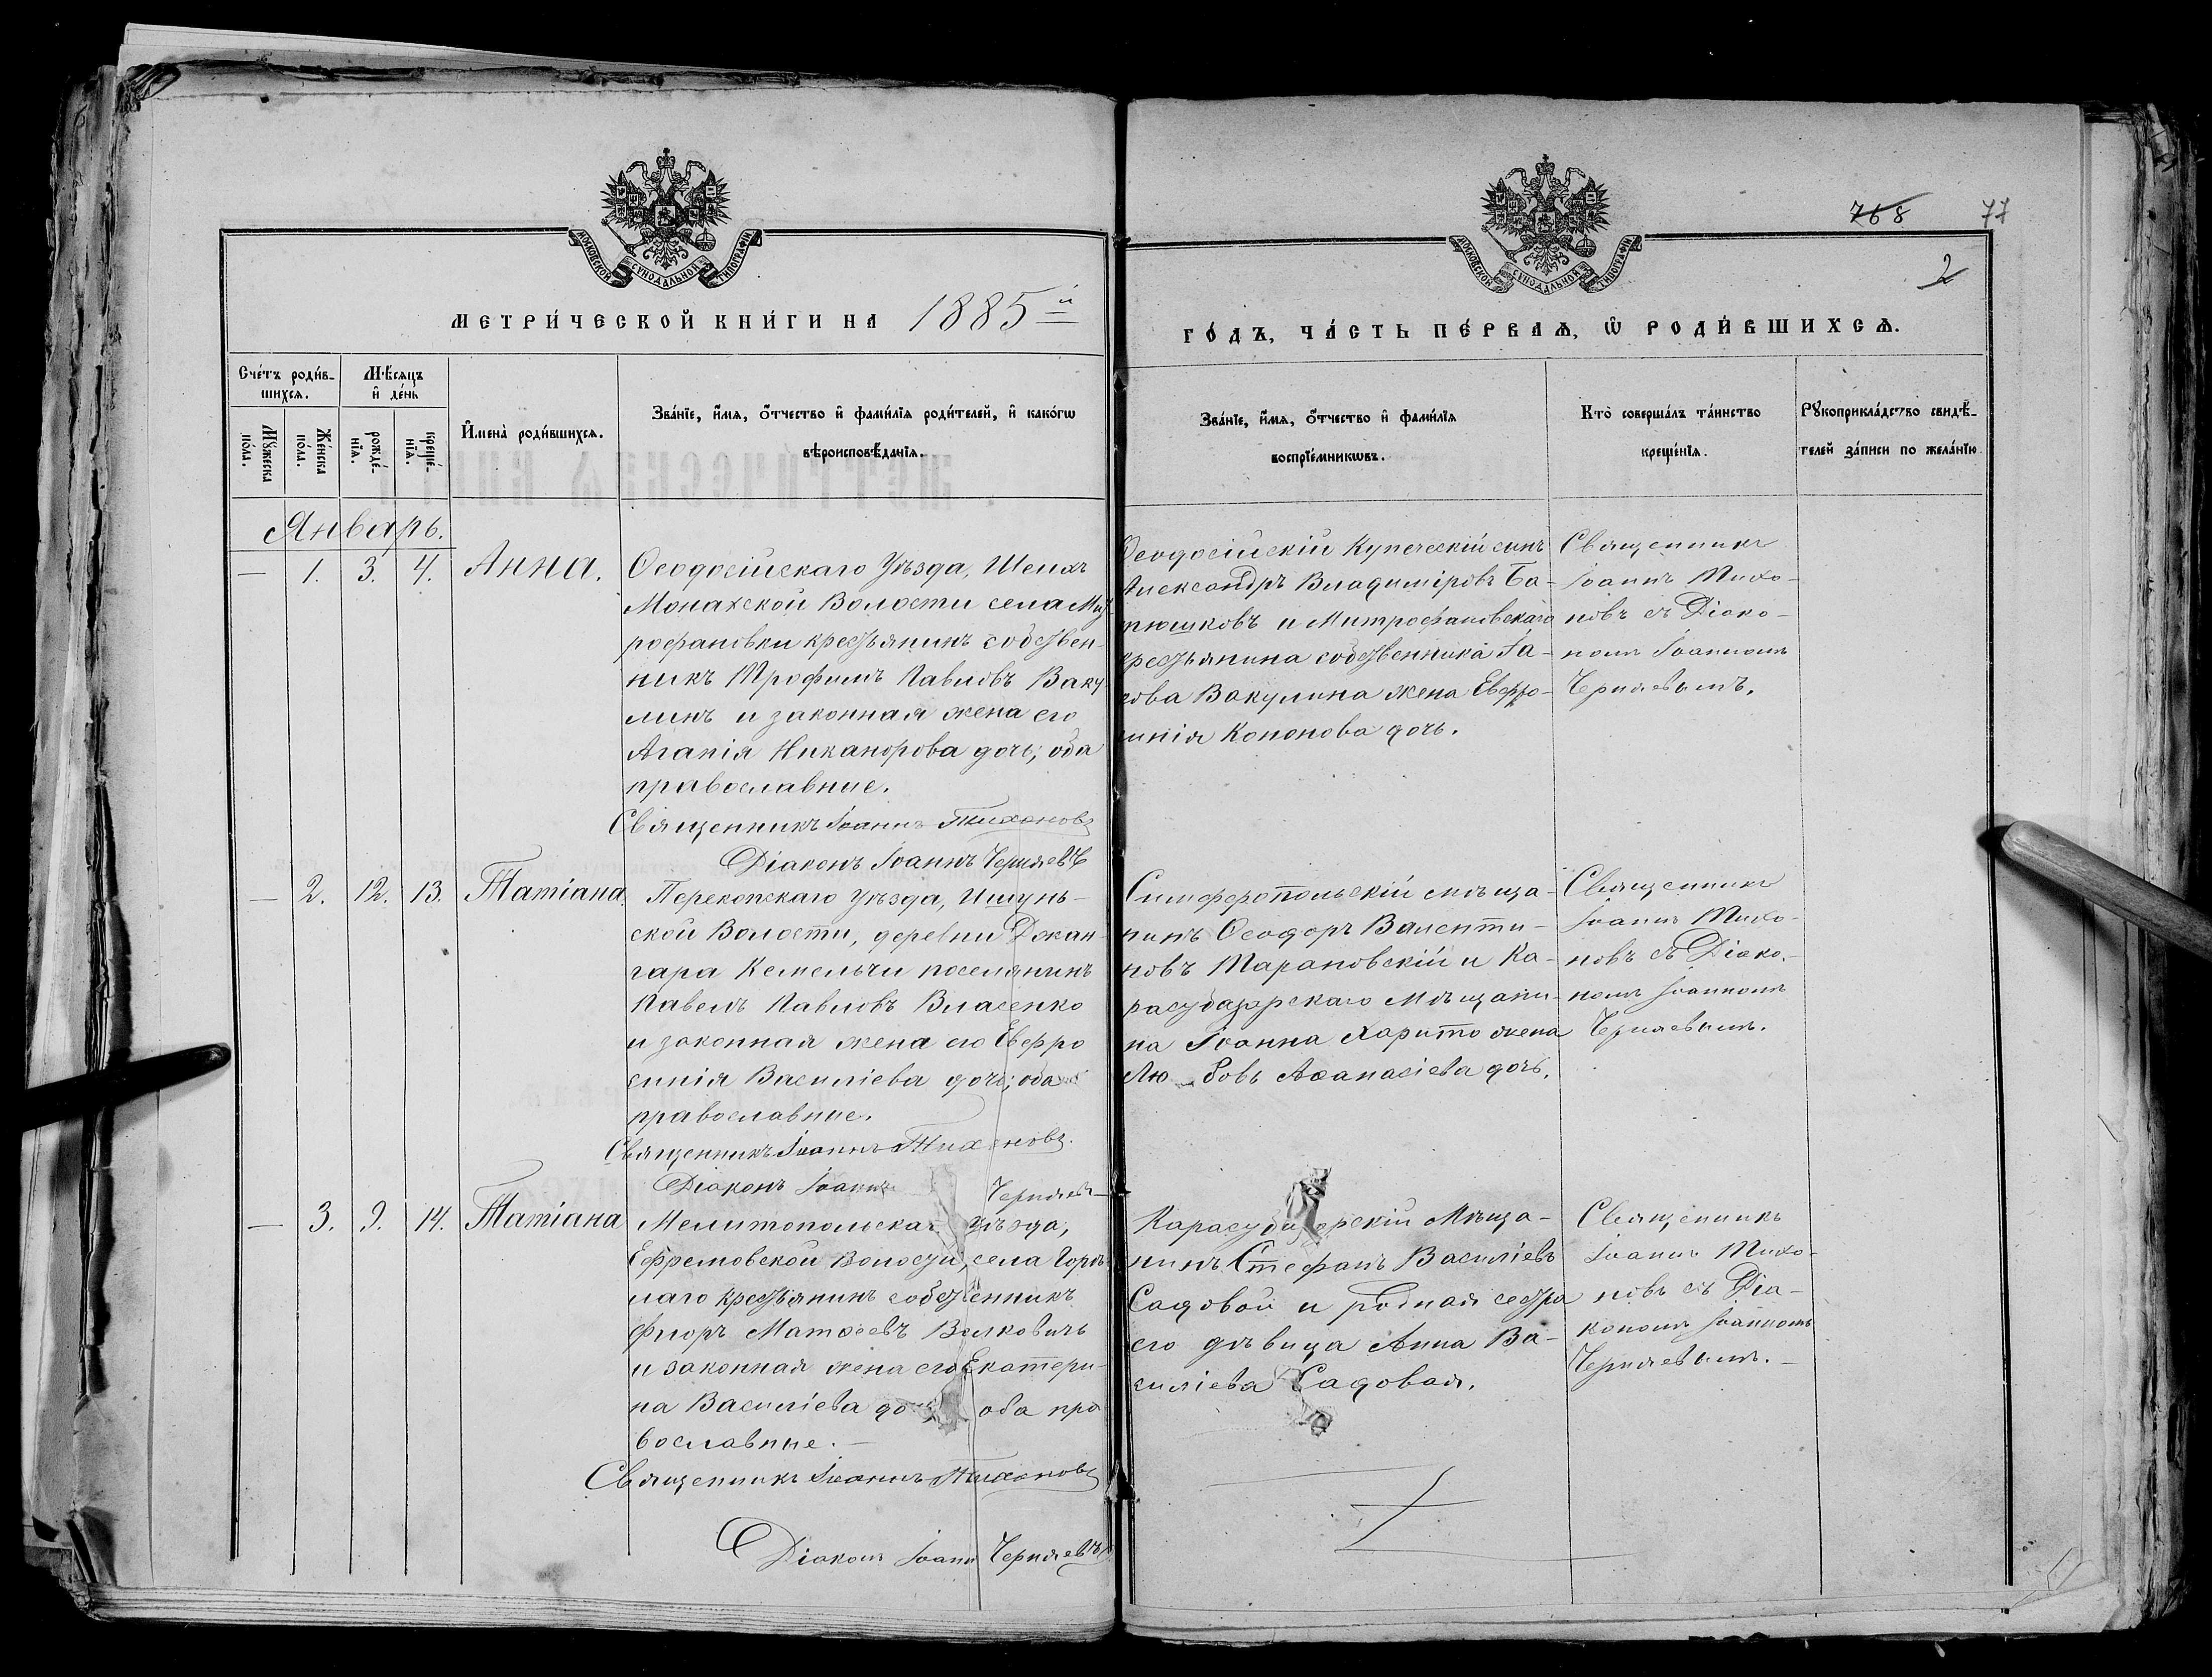 768 77
2
МОСКОВСКОЙ СУНОДАЛЬНОЙ ТИПОГРАФІИ
МОСКОВСКОЙ СУНОДАЛЬНОЙ ТИПОГРАФІИ
МЕТРИ́ЧЕСКОЙ КНИ́ГИ НА 1885й
ГО́ДЪ, ЧА́СТЬ ПЕ́РВАѦ, Ѽ РОДИ́ВШИХСѦ.
Сче́тъ роди́в-
шихсѧ.
Мѣ́сѧцъ
и҆ де́нь
Мꙋ́жеска
по́ла.
Же́нска
по́ла.
рожде́-
нїѧ.
креще́-
нїѧ.
И҆мена̀ роди́вшихсѧ.
Зва́нїе, и҆́мѧ, ѻ҆́тчество и҆ фами́лїѧ роди́телей, и҆ како́гѡ
вѣроисповѣ́данїѧ.
Зва́нїе, и҆́мѧ, ѻ҆́тчество и҆ фами́лїѧ
воспрїе́мникѡвъ.
Кто̀ соверша́лъ та́инство
креще́нїѧ.
Рꙋкоприкла́дство свидѣ́-
телей за́писи по жела́нїю
Январь.
— 1. 3. 4. Анна.
Ѳеодосійскаго Уѣзда, Шейхъ
Монахской Волости села Мит-
рофановки крестьянинъ собствен-
никъ Трофимъ Павловъ Ваку
линъ и законная жена его
Агапія Никанорова дочь; оба
православные.
Священникъ Іоаннъ Тихоновъ
Діаконъ Іоаннъ Черняевъ
Ѳеодосійскій Купеческій сынъ
Александръ Владиміровъ Ба-
тюшковъ и Митрофановскаго
крестьянина собственника Іа-
кова Вакулина жена Евфро-
синія Кононова дочь.
Священникъ
Іоаннъ Тихо-
новъ съ Діако-
номъ Іоанномъ
Черняевымъ.
— 2. 12. 13. Татіана.
Перекопскаго Уѣзда, Ишунь-
ской Волости, деревни Джан-
гара Кемельчи поселянинъ
Павелъ Павловъ Власенко
и законная жена его Евфро
синія Василіева дочь; оба
православные.
Священникъ Іоаннъ Тихоновъ.
Діаконъ Іоаннъ Черняевъ
Симферопольскій мѣща-
нинъ Ѳеодоръ Валенти-
новъ Тарановскій и Ка-
расубазарскаго Мѣщани-
на Іоанна Харито жена
Лю-бовь Аѳанасіева дочь.
Священникъ
Іоаннъ Тихо-
новъ съ Діако-
номъ Іоанномъ
Черняевымъ.
— 3. 9. 14. Татіана
Мелитопольскаго Уѣзда,
Ефремовской Волости, села Горѣ-
лаго крестьянинъ собственникъ
Флоръ Матѳеевъ Волковичъ
и законная жена его Екатери-
на Василіева дочь оба пра
вославные. —
Священникъ Іоаннъ Тихоновъ
Діаконъ Іоаннъ Черняевъ
Карасубазарскій Мѣща-
нинъ Стефанъ Василіевъ
Садовой и родная сестра
его дѣвица Анна Ва-
силіева Садовая.
Священникъ
Іоаннъ Тихо-
новъ съ Діа-
кономъ Іоанномъ
Черняевымъ. —